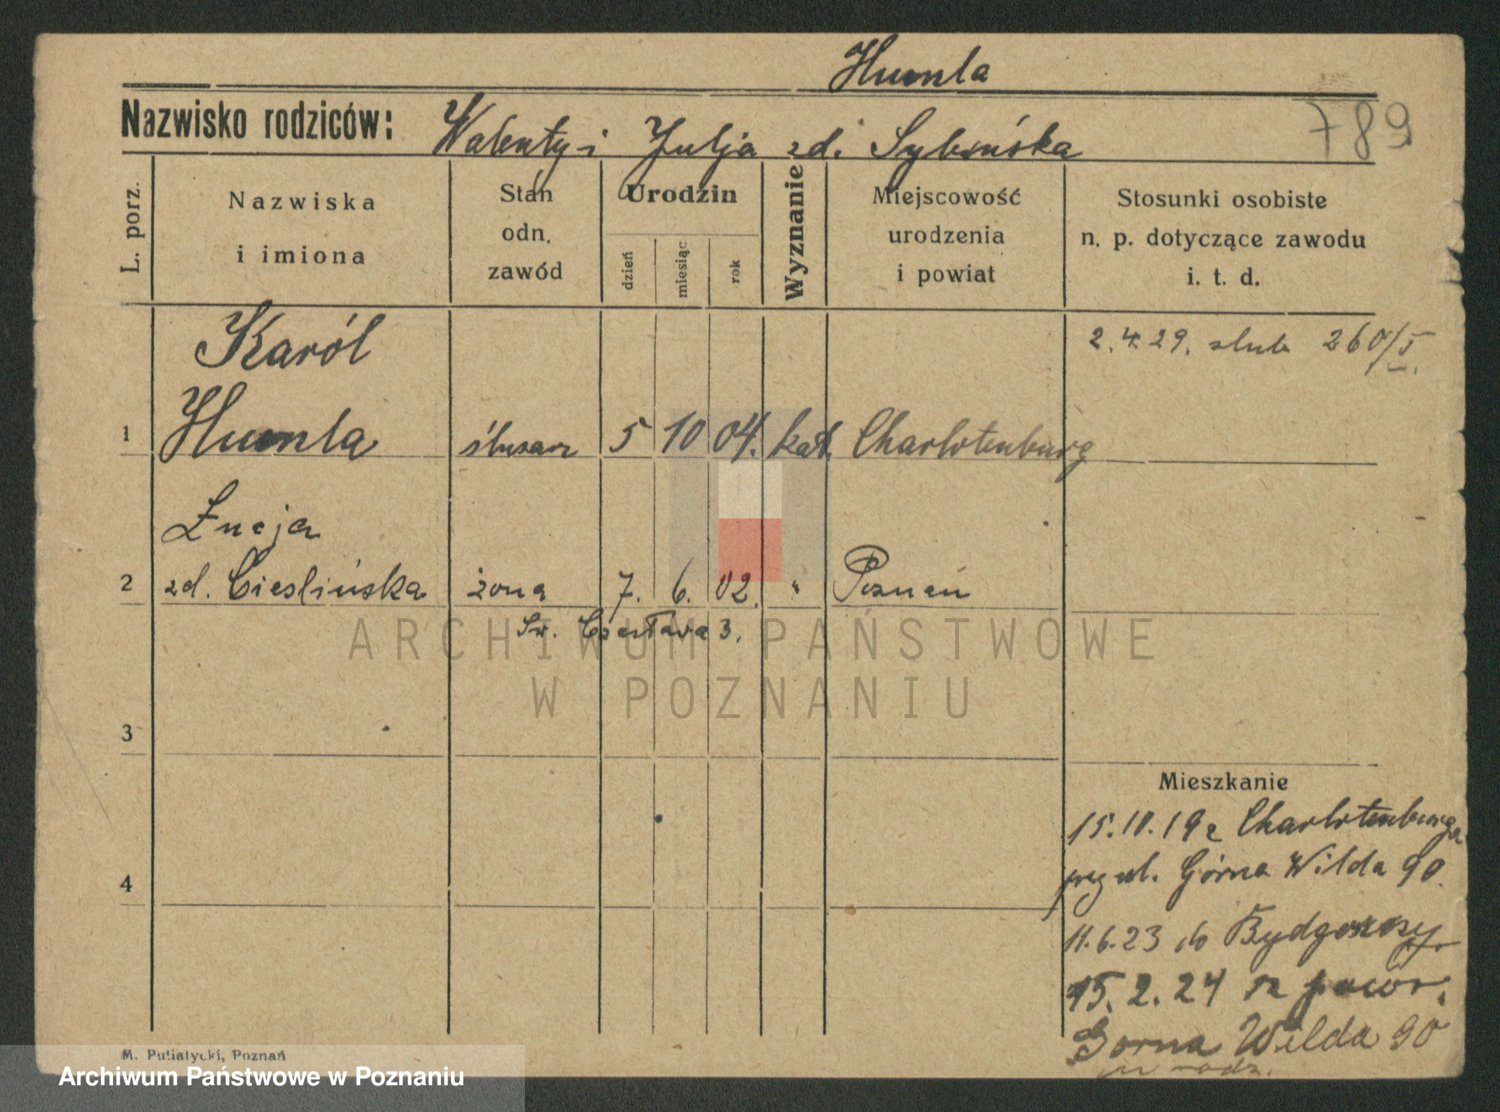 Humla
Nazwisko rodziców: Walenty i Julja zd. Sybińska
789
L. porz.
Nazwiska
i imiona
Stan
odn.
zawód
Urodzin
dzień
miesiąc
rok
Wyznanie
Miejscowość
urodzenia
i powiat
Stosunki osobiste
n. p. dotyczące zawodu
i. t. d.
Karól
2.4.29. slub 260/I.
1 Humla ślusarz 5 10 04. kat. Charlotenburg
Łucja
2 zd. Cieslińska żona 7. 6. 02. " Poznań
Św. Czesława 3.
ARCHIWUM PAŃSTWOWE
W POZNANIU
3
Mieszkanie
15.10.19 z Charlotenburga
ul. Górna Wilda 90.
4
11.6.23 do Bydgoszczy
15.2.24 powr.
Gorna Wilda 90
M. Putiatycki, Poznań
Archiwum Państwowe w Poznaniu